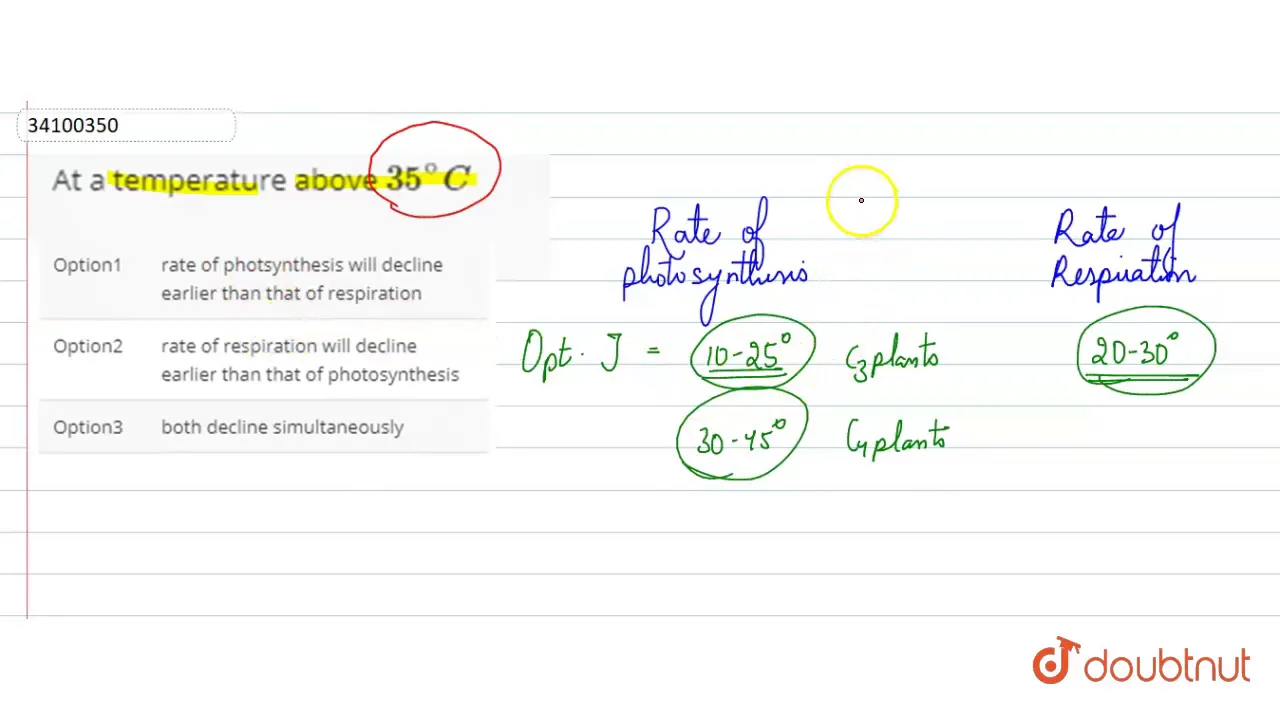 34100350
At a temperature above 35°C
Option1 rate of photsynthesis will decline
earlier than that of respiration
Option2 rate of respiration will decline
earlier than that of photosynthesis
Option3 both decline simultaneously
Rate of
photosynthesis
Rate of
Respiration
Opt. T = 10-25° C3 plants 20-30°
30-45° C4 plants
doubtnut